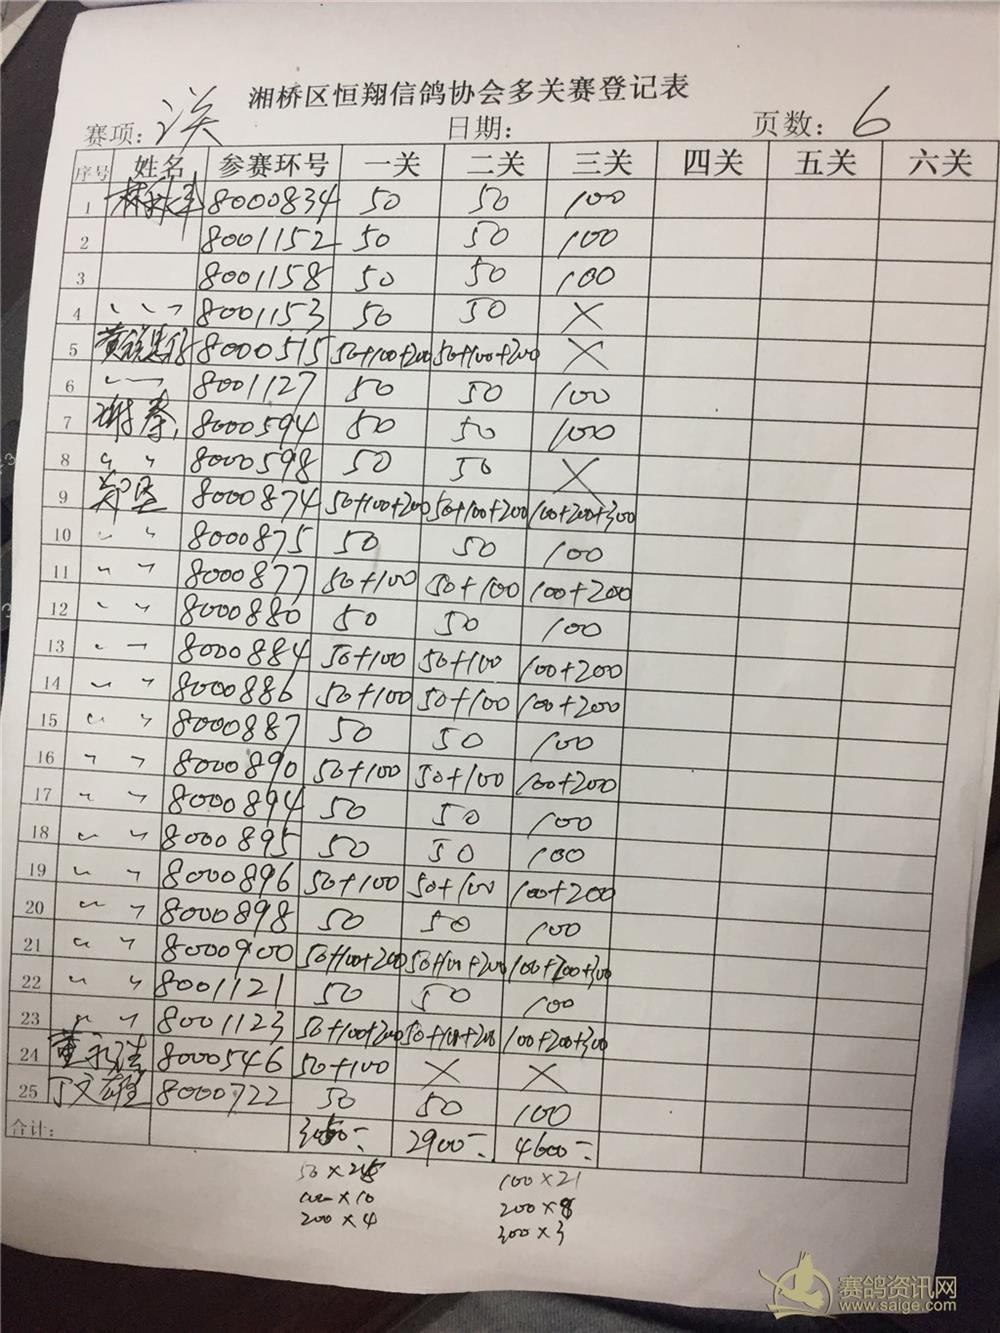 湘桥区恒翔信鸽协会多关赛登记表
赛项: 关 日期: 页数: 6
序号 姓名 参赛环号 一关 二关 三关 四关 五关 六关
1 8000834 50 50 100
2 8001152 50 50 100
3 8001158 50 50 100
4 〃 〃 8001153 50 50 ×
5 8000515 50+100+200 50+100+200 ×
6 〃 〃 8001127 50 50 100
7 谢 8000594 50 50 100
8 〃 〃 8000598 50 50 ×
9 郑 8000874 50+100+200 50+100+200 100+200+300
10 〃 〃 8000875 50 50 100
11 〃 〃 8000877 50+100 50+100 100+200
12 〃 〃 8000880 50 50 100
13 〃 〃 8000884 50+100 50+100 100+200
14 〃 〃 8000886 50+100 50+100 100+200
15 〃 〃 8000887 50 50 100
16 〃 〃 8000890 50+100 50+100 100+200
17 〃 〃 8000894 50 50 100
18 〃 〃 8000895 50 50 100
19 〃 〃 8000896 50+100 50+100 100+200
20 〃 〃 8000898 50 50 100
21 〃 〃 8000900 50+100+200 50+100+200 100+200+300
22 〃 〃 8001121 50 50 100
23 〃 〃 8001123 50+100+200 50+100+200 100+200+300
24 董永浩 8000546 50+100 × ×
25 丁文雄 8000722 50 50 100
合计: 2900- 4600-
50×25 100×21
100×10 200×8
200×4 300×3
赛鸽资讯网
www.saige.com